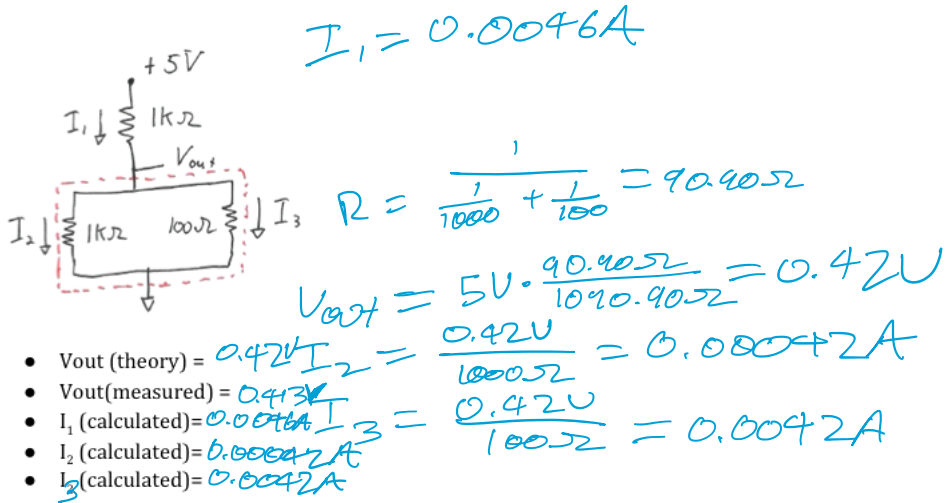 I₁ = 0.0046A
+5V
I₁ 1kΩ
Vout
I₂ 1kΩ 100Ω I₃
R = 1 / (1/1000 + 1/100) = 90.90Ω
Vout = 5V · 90.90Ω / 1090.90Ω = 0.42V
I₂ = 0.42V / 1000Ω = 0.00042A
I₃ = 0.42V / 100Ω = 0.0042A
• Vout (theory) = 0.42V
• Vout(measured) = 0.413V
• I₁ (calculated)= 0.0046A
• I₂ (calculated)= 0.00042A
• I₃ (calculated)= 0.0042A